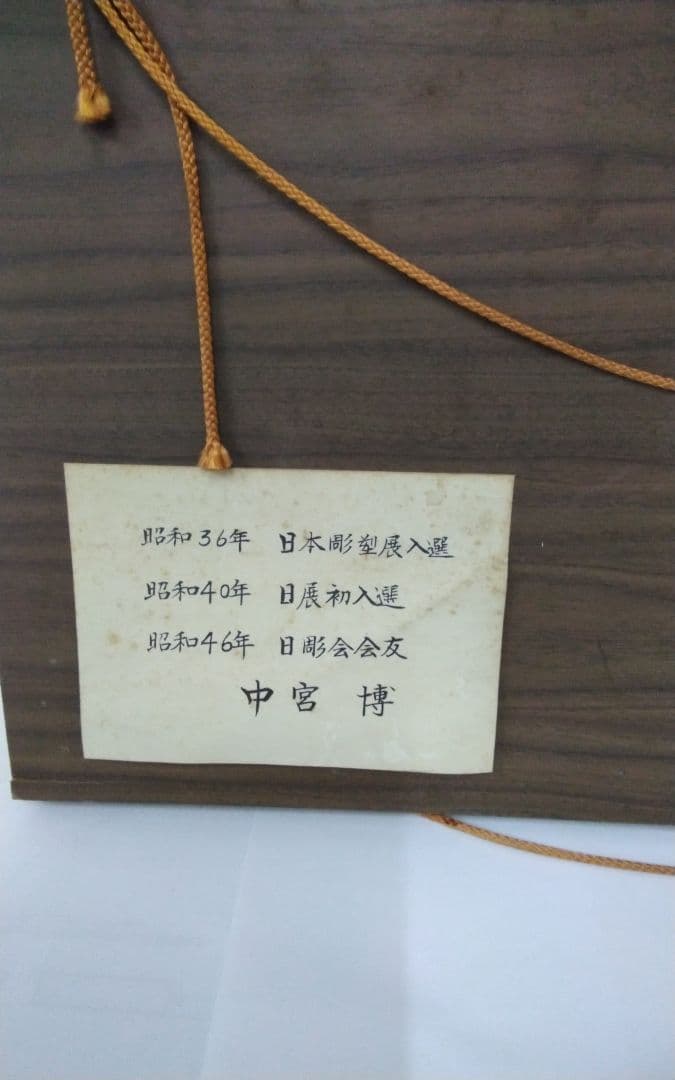 昭和36年 日本彫塑展入選
昭和40年 日展初入選
昭和46年 日彫会会友
中宮 博